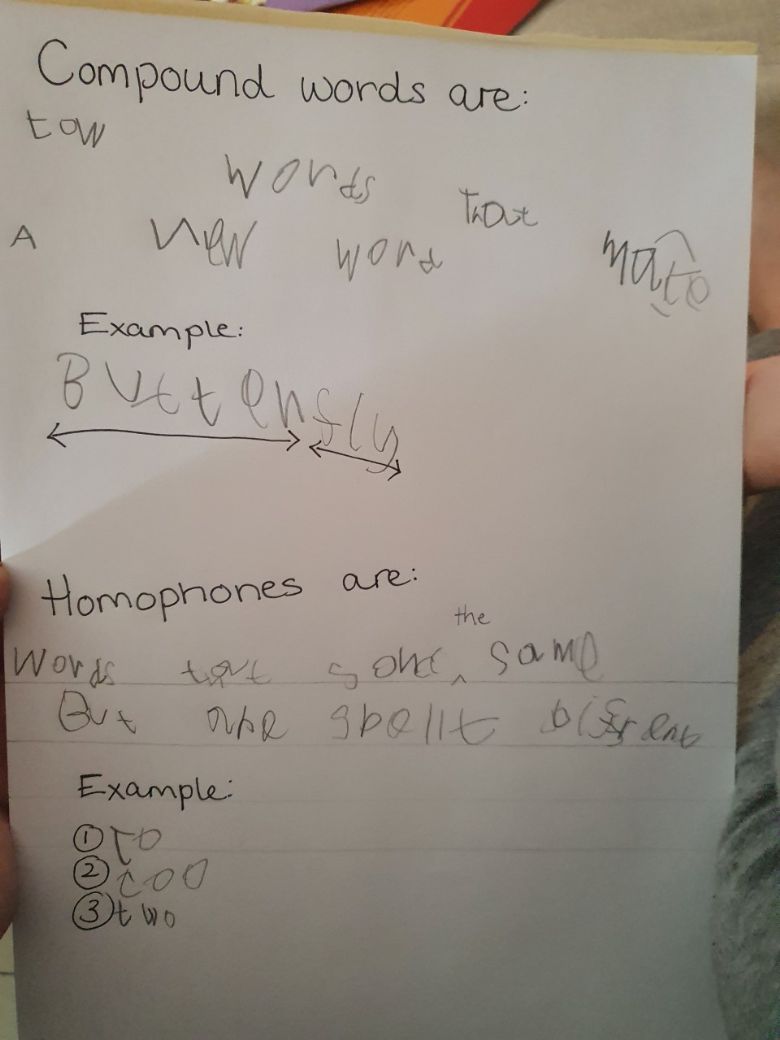 Compound words are:
tow words that mato
A new word
Example:
Butterfly
Homophones are:
the
Words tat sond ^ same
But are spellt bifrent
Example:
① to
② too
③ two